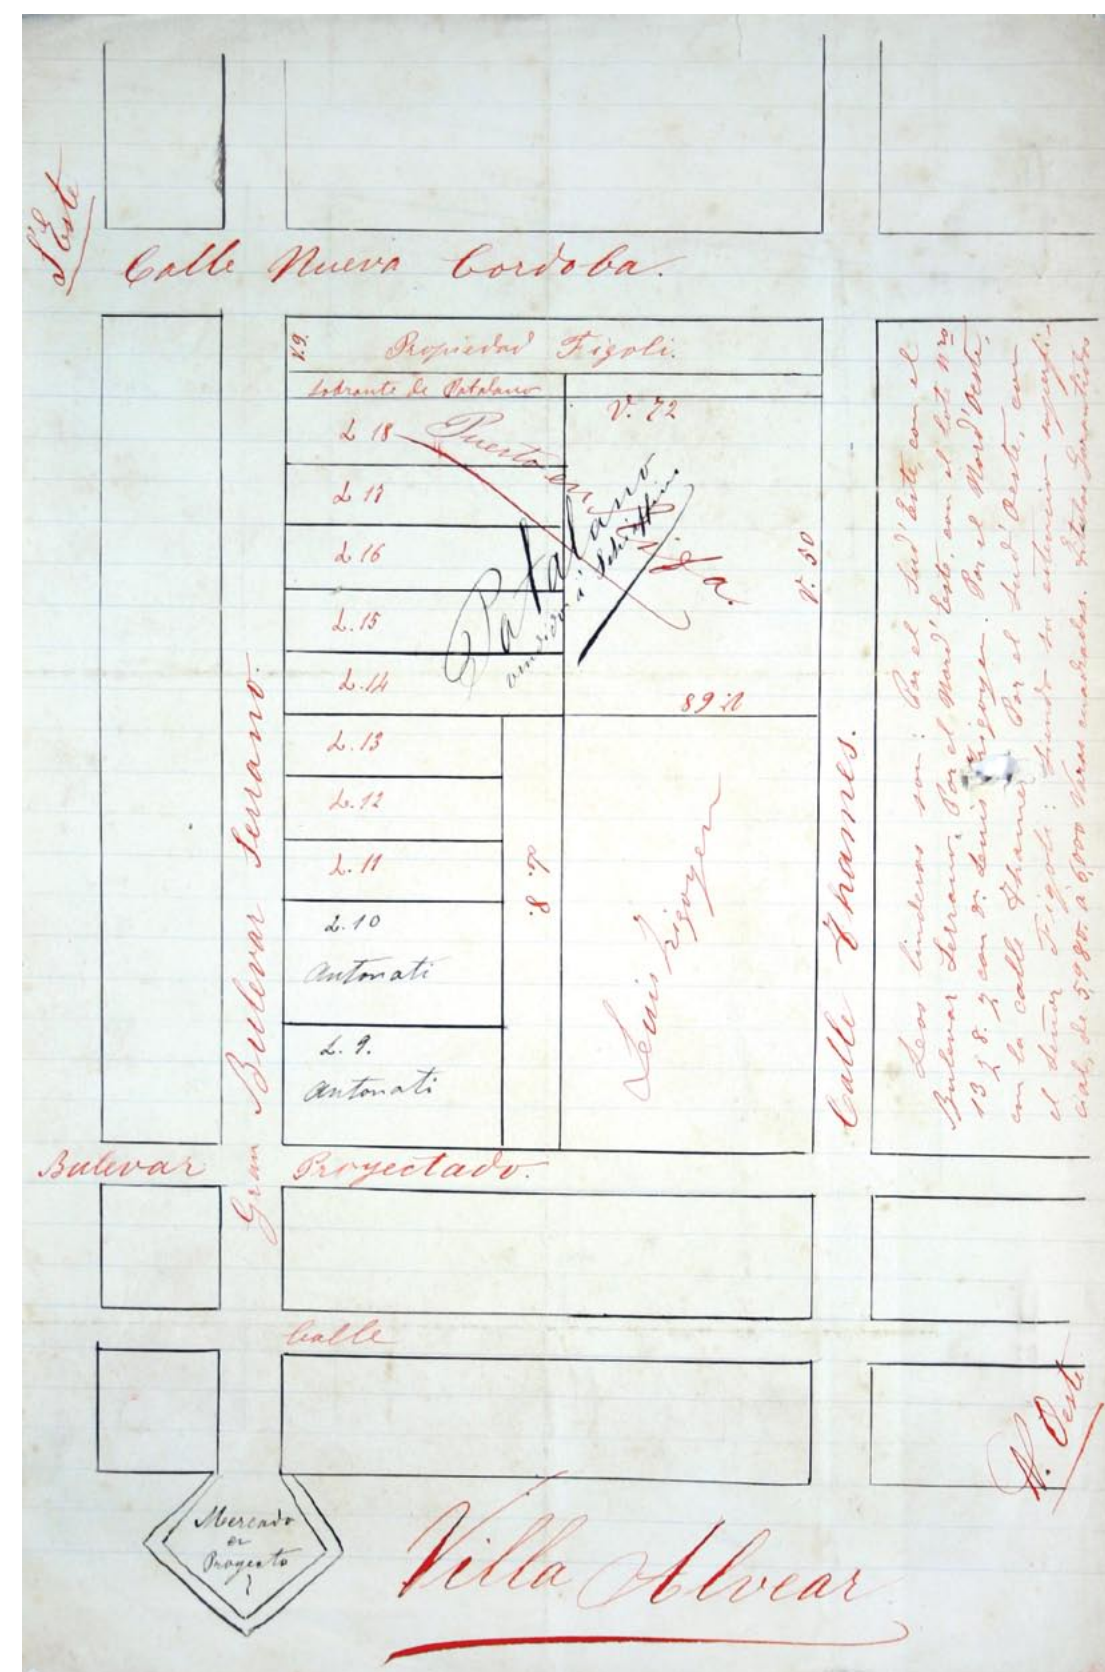 S. Este
Calle Nueva Cordoba.
V. 9.
Propiedad Figoli.
Sobrante de Catalano
V. 72
L 18
Puesto en
L 17
L 16
L. 15
L. 14
Catalano
vendido á Schiaffino
V. 50
L. 13
L. 12
L. 11
L. 10
Antonati
L. 9.
Antonati
L. 8.
Luis Irigoyen
Gran Bulevar Serrano.
Calle Thames.
Leos linderos son: Por el Sud'Este, con el
Bulevar Serrano. Por el Nord'Este, con el lote Nro
13 y 8. y con D. Luis Irigoyen. Por el Nord'Oeste,
con la calle Thames. Por el Sud'Oeste, con
el señor Figoli: siendo su estencion superfi-
cial, de 5,980. á 6,000 Varas cuadradas. Titulos Garantidos
Bulevar Proyectado.
Calle
N. Oeste
Mercado
en
Proyecto
?
Villa Alvear